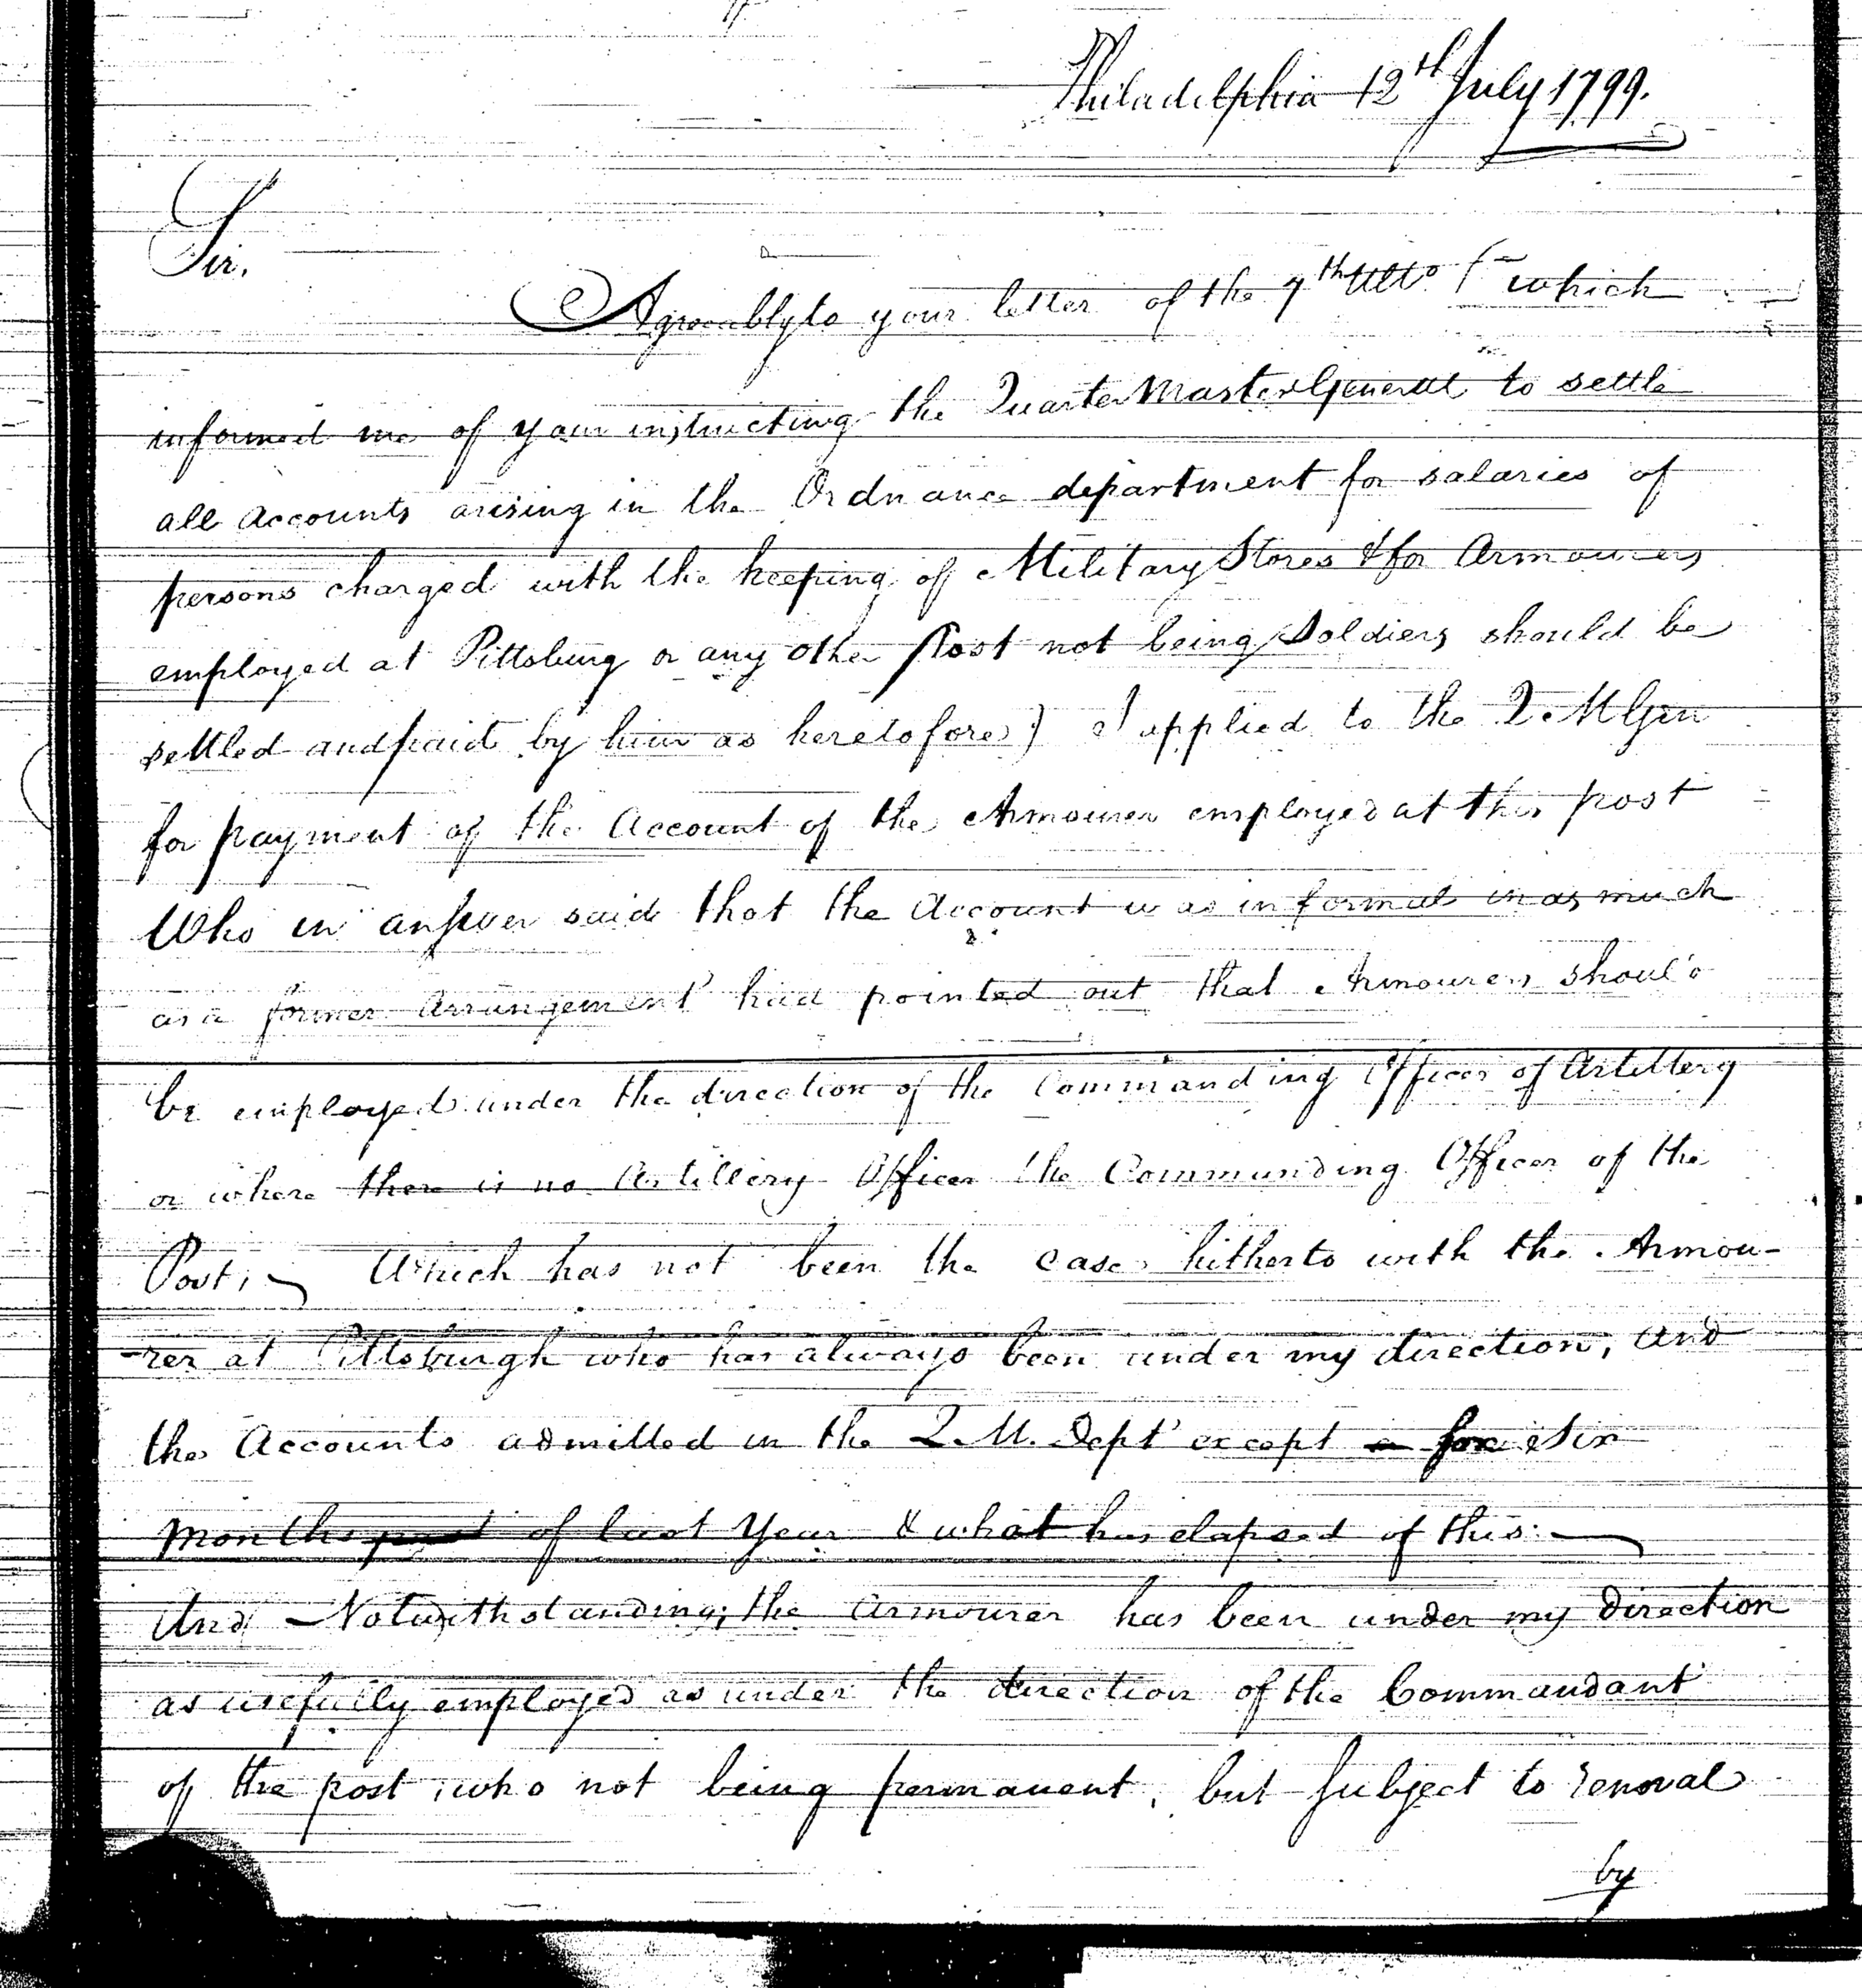 Philadelphia 12th July 1799.
Sir.
Agreeably to your letter of the 7th Ulto (which
informed me of your instructing the Quarter Master General to settle
all Accounts arising in the Ordnance department for salaries of
persons charged with the keeping of Military Stores & for Armourers
employed at Pittsburg or any other Post not being Soldiers should be
settled and paid by him as heretofore) I applied to the Q. M Gen
for payment of the Account of the Armourer employed at this post
Who in answer said that the Account was informal in as much
as a former Arrangement had pointed out that Armourers should
be employed under the direction of the Commanding Officer of Artillery
or where there is no Artillery Officer the Commanding Officer of the
Post; Which has not been the case hitherto with the Armou-
-rer at Pittsburgh who has always been under my direction, and
the Accounts admitted in the Q. M. Dept except for Six
Months of last Year & what has elapsed of this
And Notwithstanding; the Armourer has been under my direction
as usefully employed as under the direction of the Commandant
of the post, who not being permanent, but subject to removal
by